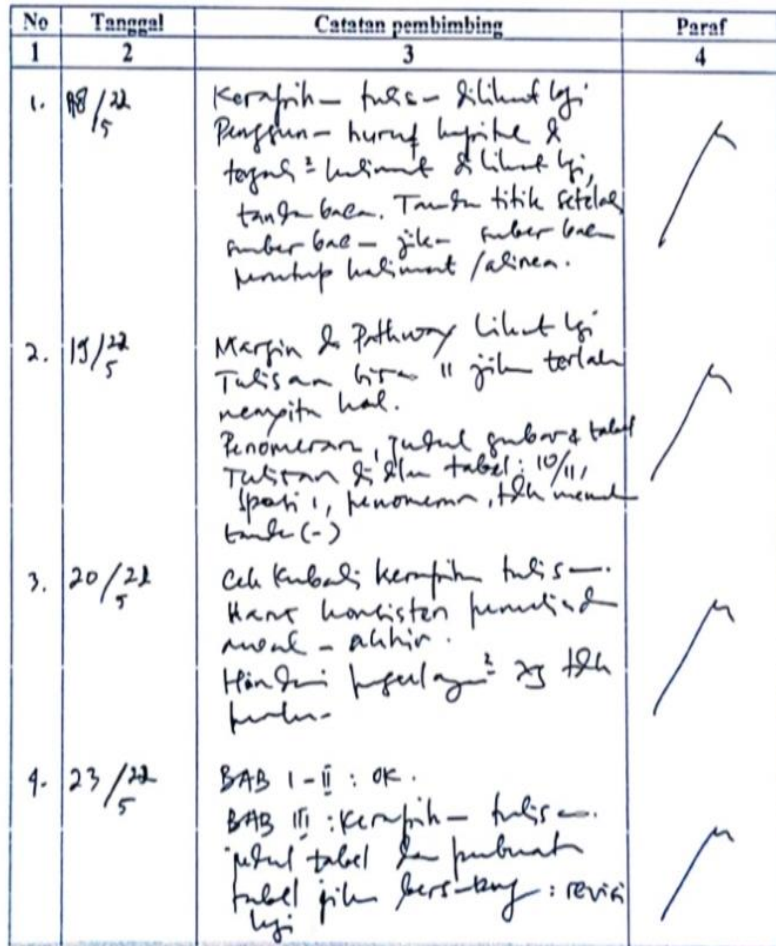 No Tanggal Catatan pembimbing Paraf
1 2 3 4
1. 18/22 5 Kerapih- tulis- dilihat lgi
Penggun- huruf kapital &
tengah ² kalimat dilihat lgi,
tanda baca. Tanda titik setelah
sumber bac- jik- sumber baca
penutup kalimat / alinea.
2. 19/22 5 Margin & Pathway lihat lgi
Tulisan bisa 11 jika terlalu
menyita hal.
Penomeran, judul gambar & tabel
Tulisan di dlm tabel: 10/11,
spasi 1, penomeran, tdk memakai
tanda (-)
3. 20/22 5 Cek kembali kerapihan tulis-.
Harus konsisten penulisan
awal - akhir.
Hindari pengulangan² yg tdk
perlu-
4. 23/22 5 BAB I - II : OK.
BAB III : Kerapih- tulis-.
judul tabel dan pembuatan
tabel jika bersambung : revisi
lgi